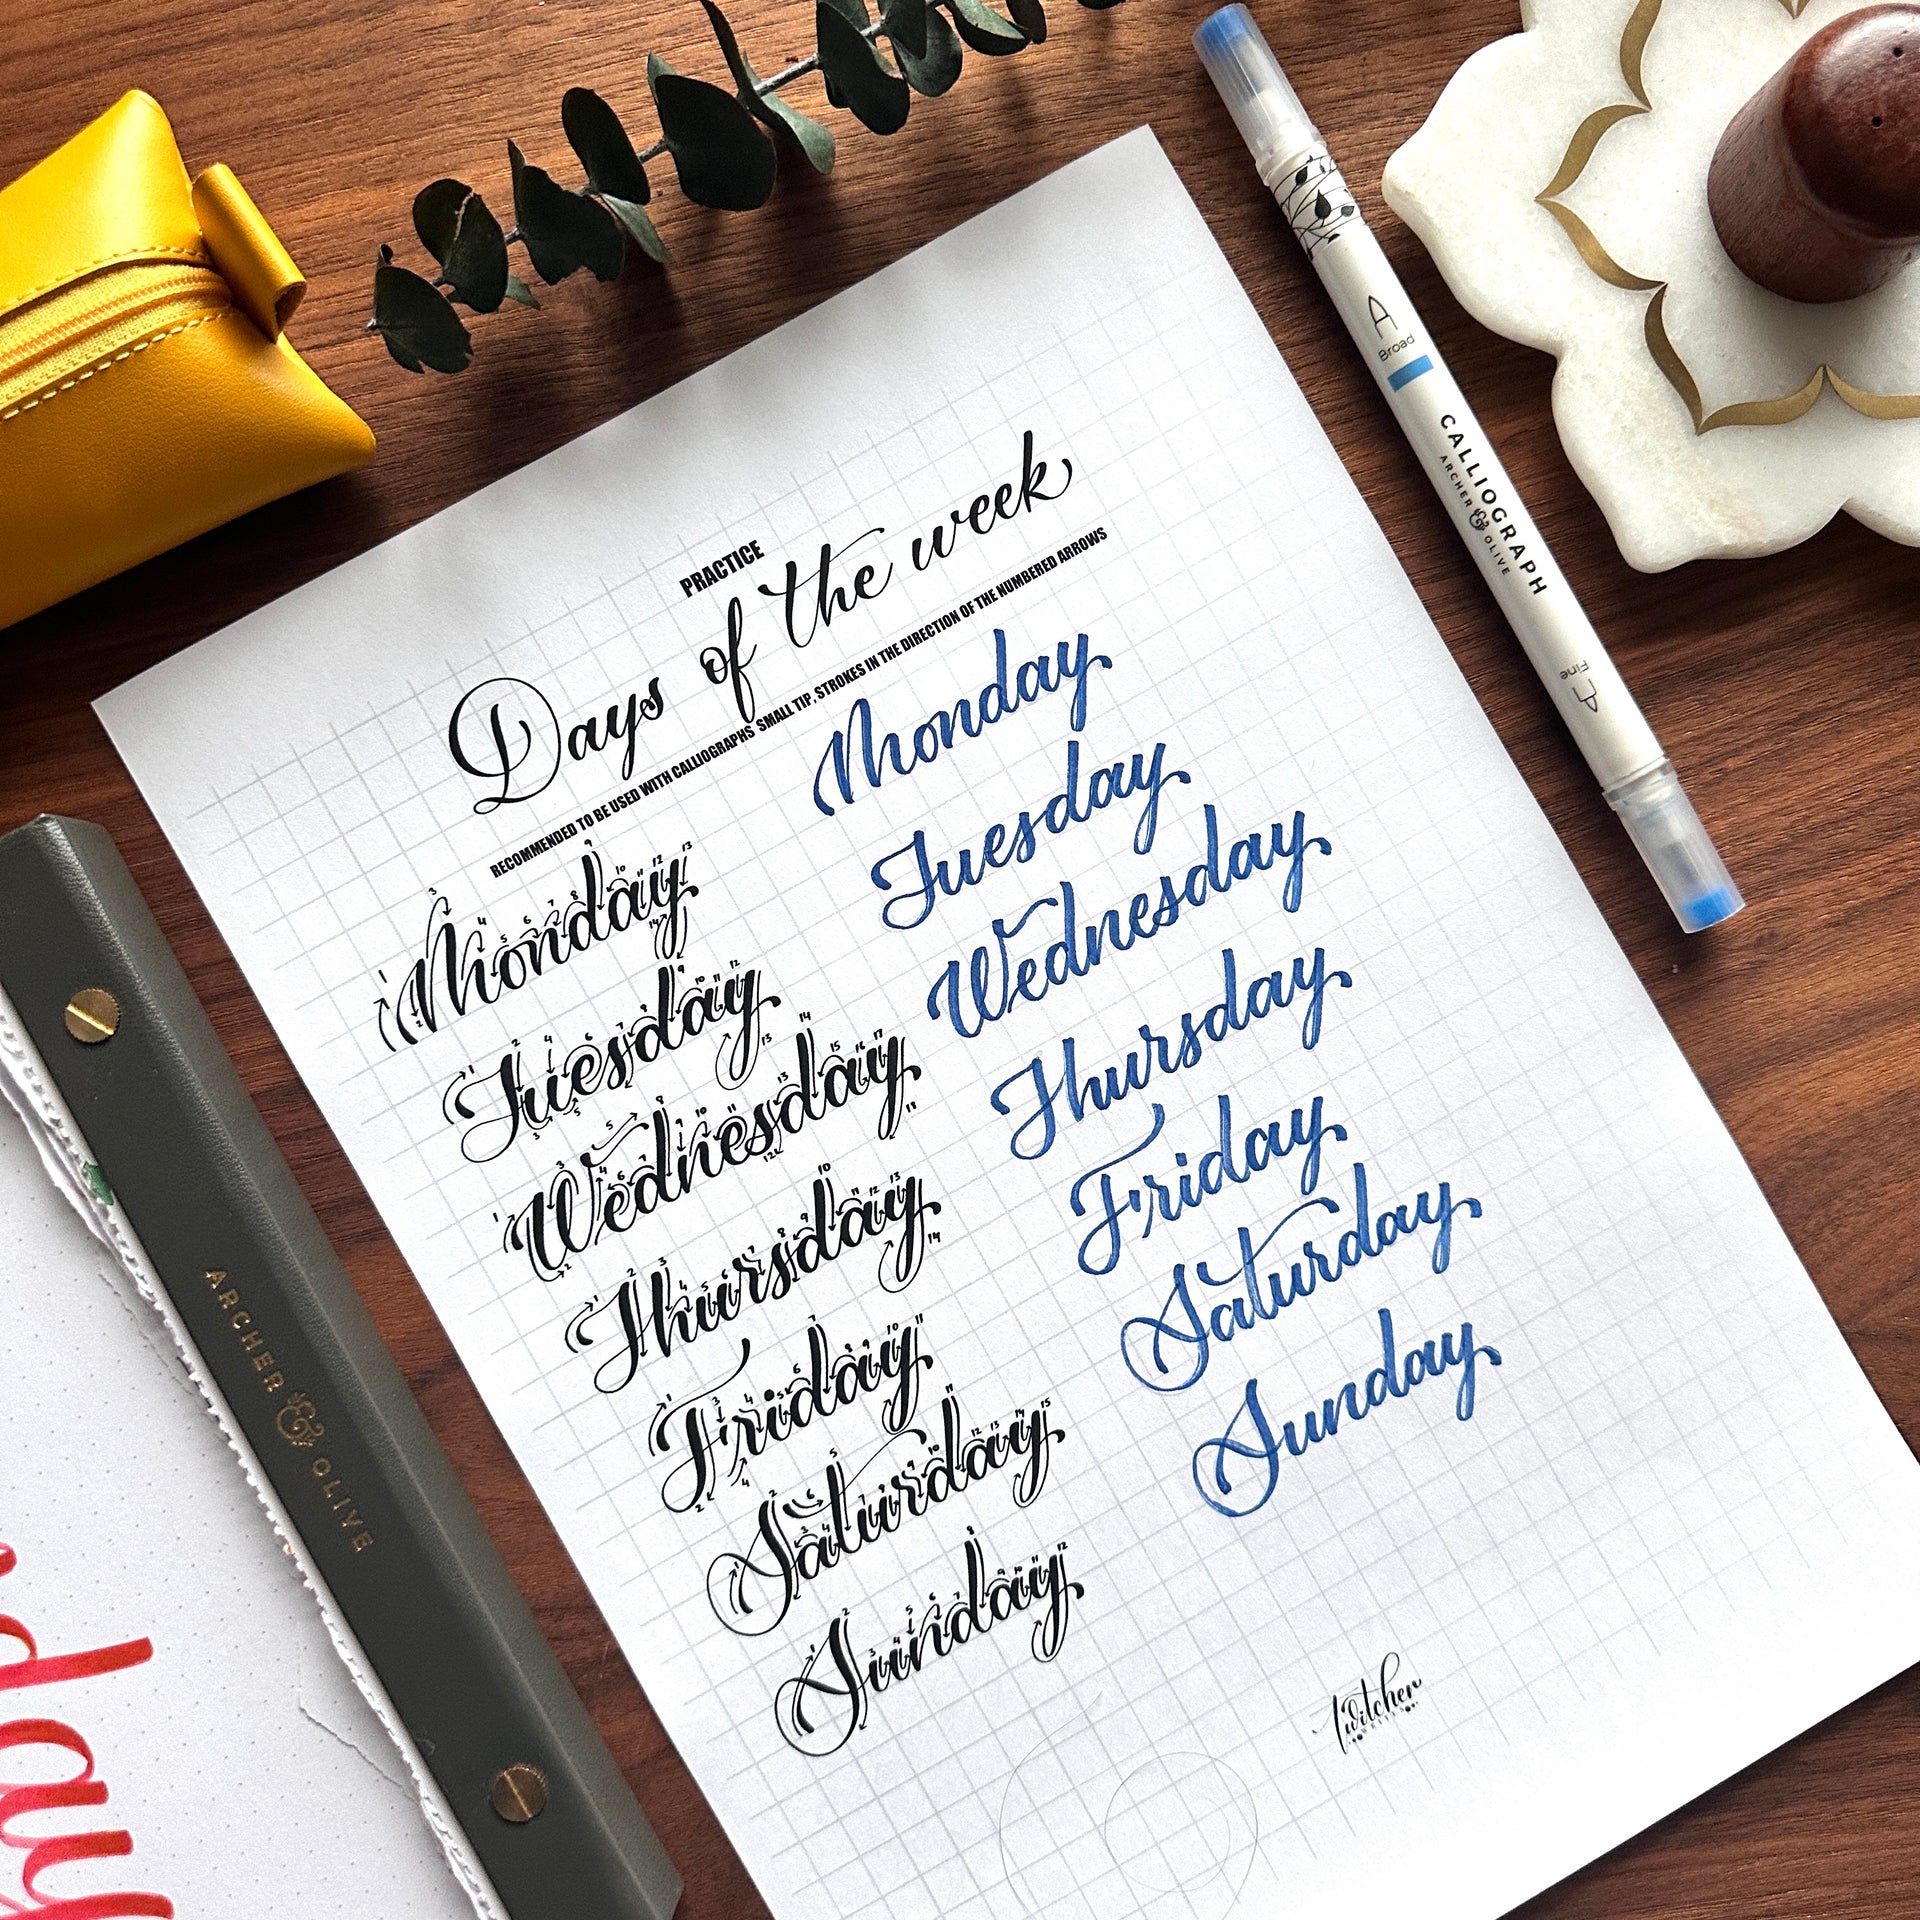 PRACTICE
Days of the week
RECOMMENDED TO BE USED WITH CALLIOGRAPHS SMALL TIP, STROKES IN THE DIRECTION OF THE NUMBERED ARROWS
Monday
Tuesday
Wednesday
Thursday
Friday
Saturday
Sunday
Monday
Tuesday
Wednesday
Thursday
Friday
Saturday
Sunday
A Broad
CALLIOGRAPH
ARCHER & OLIVE
Fine
ARCHER & OLIVE